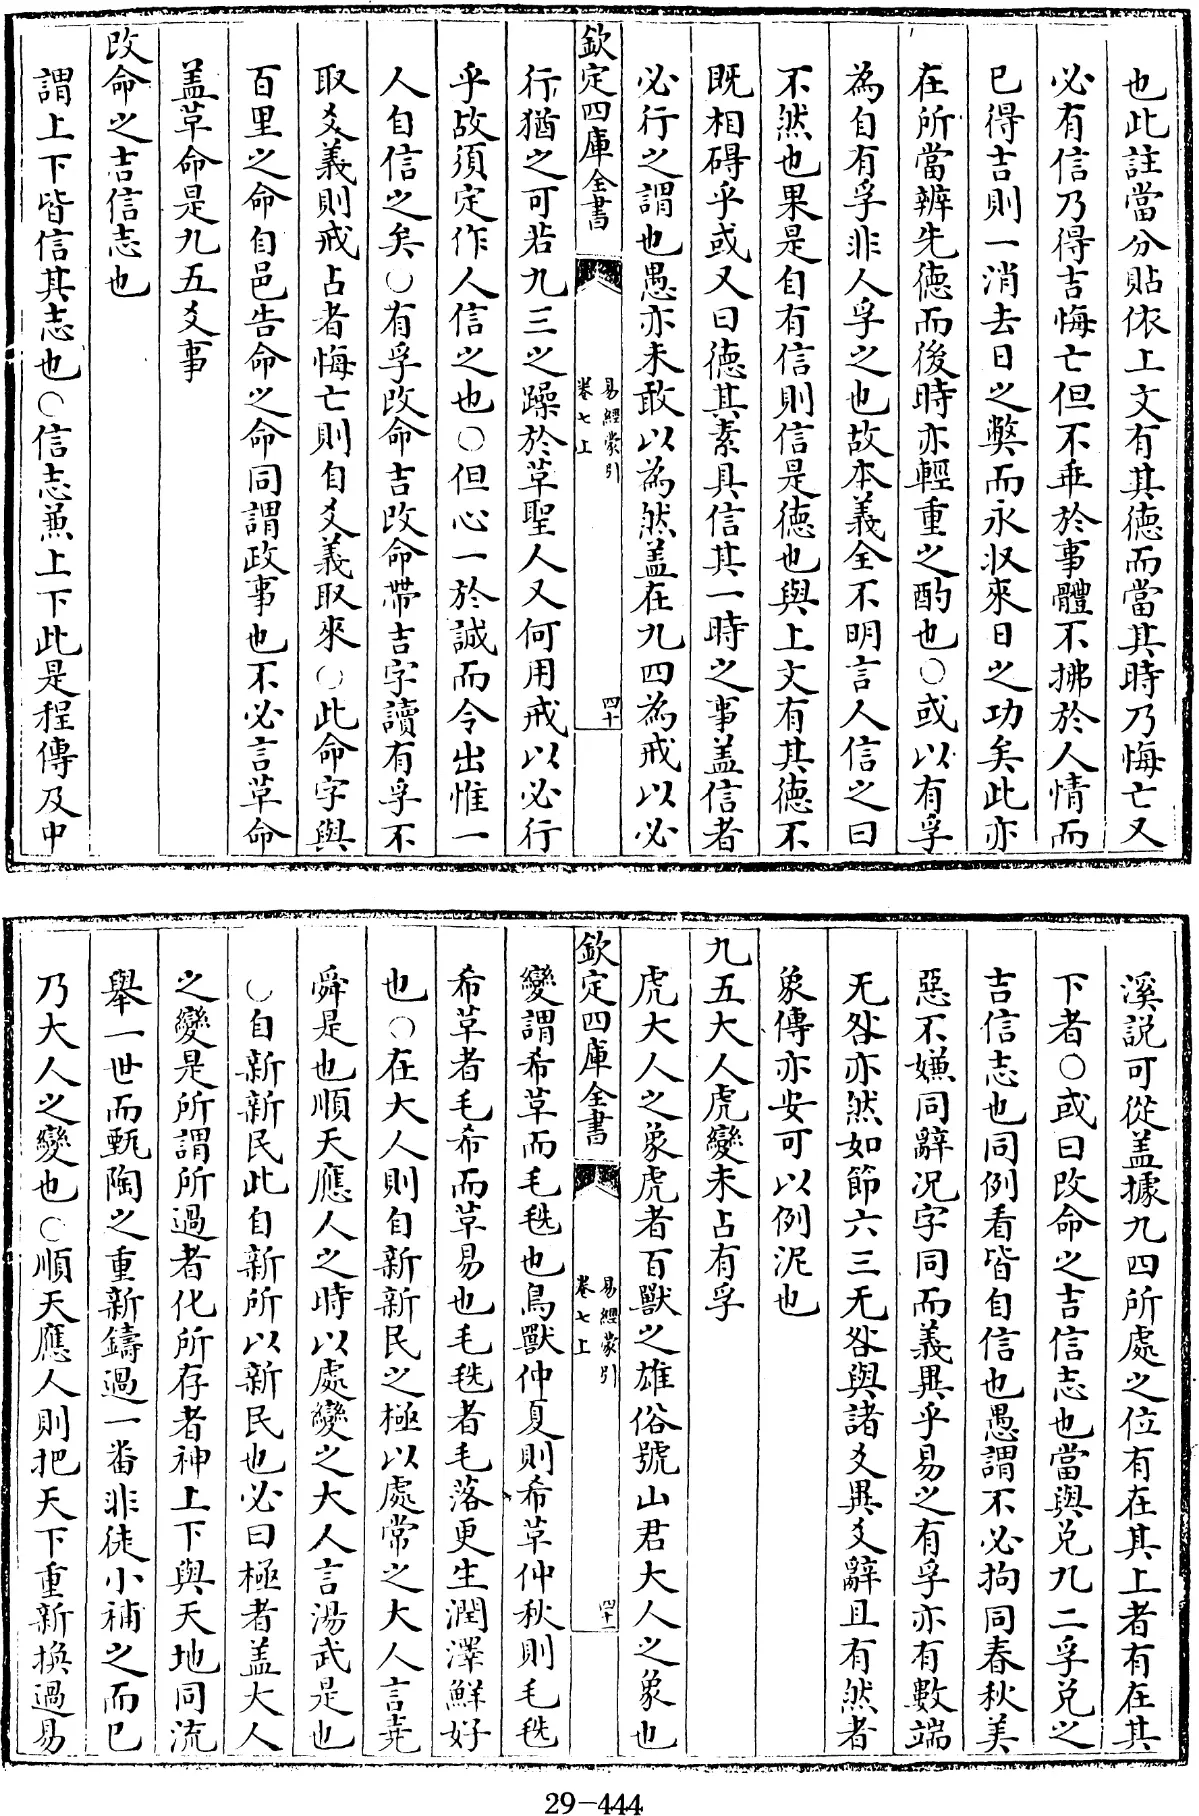 也此註當分貼依上文有其德而當其時乃悔亡又
必有信乃得吉悔亡但不乖於事體不拂於人情而
已得吉則一消去日之弊而永収來日之功矣此亦
在所當辨先德而後時亦輕重之酌也○或以有孚
為自有孚非人孚之也故本義全不明言人信之曰
不然也果是自有信則信是德也與上文有其德不
既相碍乎或又曰德其素具信其一時之事盖信者
必行之謂也愚亦未敢以為然盖在九四為戒以必
欽定四庫全書
易經蒙引
卷七上
四十
行猶之可若九三之躁於革聖人又何用戒以必行
乎故須定作人信之也○但心一於誠而令出惟一
人自信之矣○有孚改命吉改命帶吉字讀有孚不
取爻義則戒占者悔亡則自爻義取來○此命字與
百里之命自邑告命之命同謂政事也不必言革命
盖革命是九五爻事
改命之吉信志也
謂上下皆信其志也○信志兼上下此是程傳及中
溪説可從盖據九四所處之位有在其上者有在其
下者○或曰改命之吉信志也當與兌九二孚兌之
吉信志也同例看皆自信也愚謂不必拘同春秋美
惡不嫌同辭况字同而義異乎易之有孚亦有數端
无咎亦然如節六三无咎與諸爻異爻辭且有然者
象傳亦安可以例泥也
九五大人虎變未占有孚
虎大人之象虎者百獸之雄俗號山君大人之象也
欽定四庫全書
易經蒙引
卷七上
四十一
變謂希革而毛毨也鳥獸仲夏則希革仲秋則毛毨
希革者毛希而革易也毛毨者毛落更生潤澤鮮好
也○在大人則自新新民之極以處常之大人言堯
舜是也順天應人之時以處變之大人言湯武是也
○自新新民此自新所以新民也必曰極者盖大人
之變是所謂所過者化所存者神上下與天地同流
舉一世而甄陶之重新鑄過一番非徒小補之而已
乃大人之變也○順天應人則把天下重新換過易
29-444